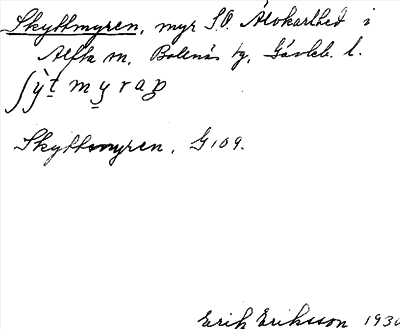 Skyttmyren, myr SO. Älvkarlhed i
Alfta sn, Bollnäs tg, Gävleb. l.
ʃỳt myrap
Skyttmyren, G 109.
Erik Eriksson 1930